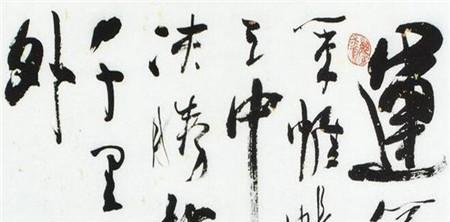 運
策帷帳
之中
決勝
千里
外